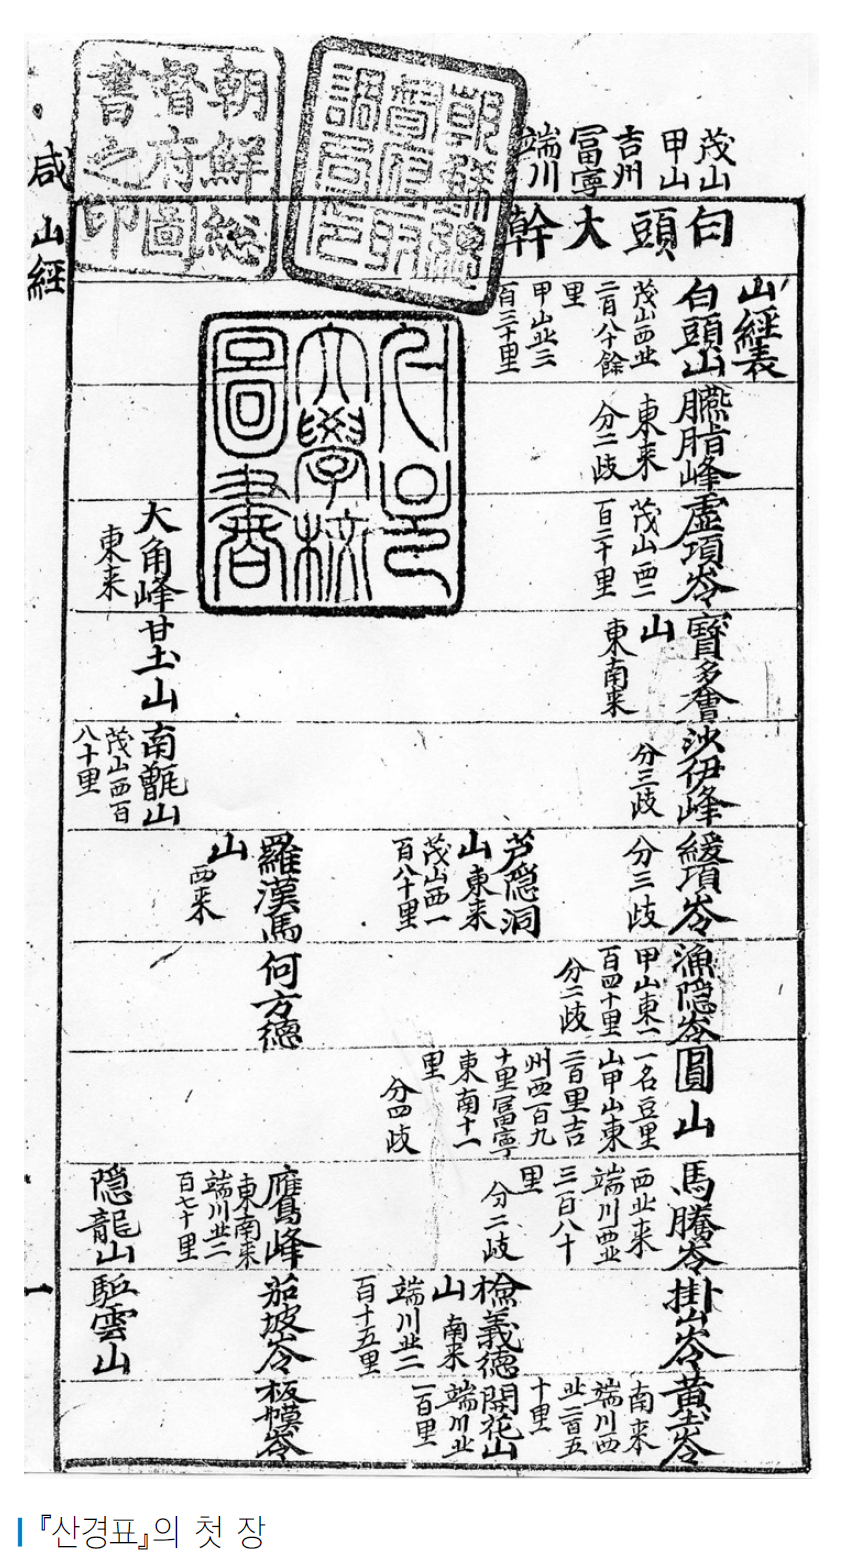 茂山
甲山
吉州
冨寧
端川
白頭大幹
山經表
白頭山
茂山西北
二百八十餘
里
甲山北三
百三十里
臙脂峰
東来
分二歧
虛項岺
茂山西二
百二十里
寶多會
山
東南来
沙伊峰
分三歧
緩項岺
分三歧
漁隠岺
甲山東一
百四十里
分二歧
圓山
一名豆里
山甲山東
二百里吉
州西百九
十里冨寧
東南十一
里
分四歧
馬騰岺
西北来
端川西北
三百八十
里
分二歧
掛山岺
黄土岺
南来
端川西
北二百五
十里
芦隠洞
山東来
茂山西一
百八十里
檢義德
山南来
端川北二
百十五里
開花山
端川北
一百里
羅漢馬
山
西来
何方德
鷹峰
東南来
端川北二
百七十里
茄坡岺
板幙岺
大角峰
東来
甘土山
南甑山
茂山西百
八十里
隠龍山
駈雲山
朝鮮総
督府圖
書之印
大學校
圖書
咸山經
一
『산경표』의 첫 장